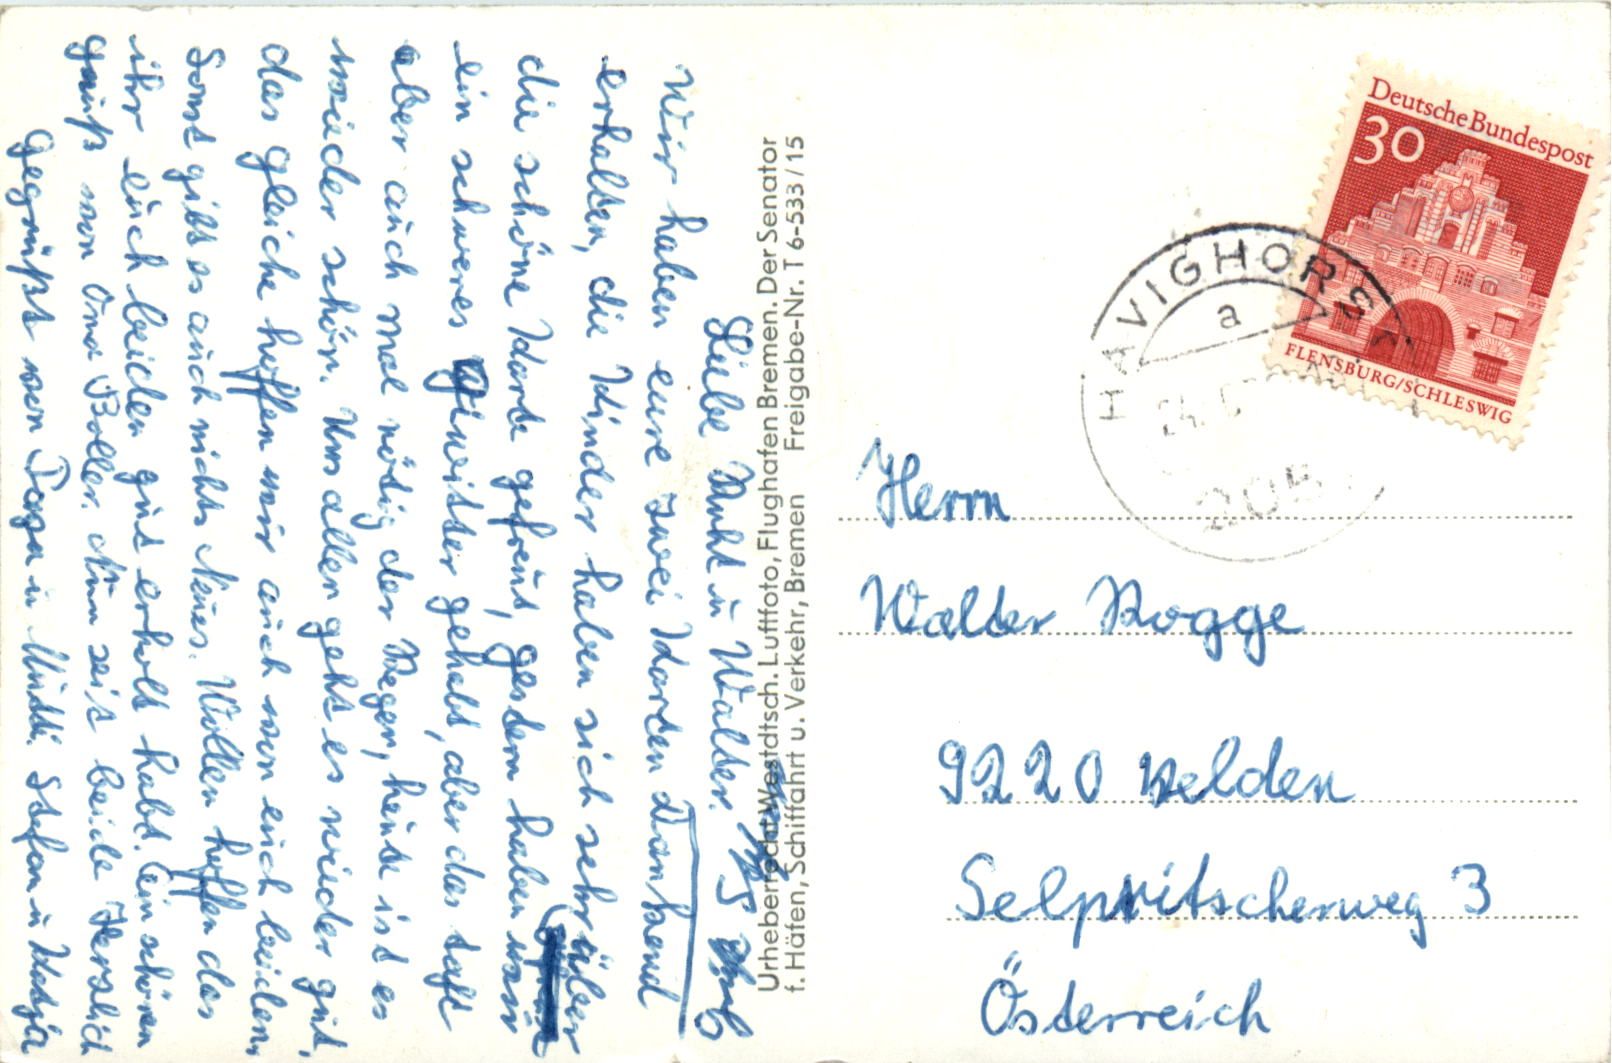 Liebe Ruht u Walter.
Wir haben eure zwei Karten Dankend
erhalten, die Kinder haben sich sehr über
die schöne Karte gefreut, gestern haben wir
ein schweres Gewitter gehabt, aber das tat
aber auch mal nötig der Regen, heute ist es
wieder schön. Uns allen geht es wieder gut,
das gleiche hoffen wir auch von euch beiden,
Sonst gibt es auch nichts Neues. Wollen hoffen das
ihr euch beiden gut erholt habt. Ein schönen
gruß von Oma Boller. Nun seit beide Herzlich
gegrüßt von Papa u Mutti. Stefan u Katja
Urheberrecht Westdtsch. Luftfoto, Flughafen Bremen. Der Senator
f. Häfen, Schiffahrt u. Verkehr, Bremen Freigabe-Nr. T 6-533/15
Deutsche Bundespost
30
FLENSBURG/SCHLESWIG
HAVIGHORST
a
205
Herrn
Walter Rogge
9220 Velden
Selpritscherweg 3
Österreich